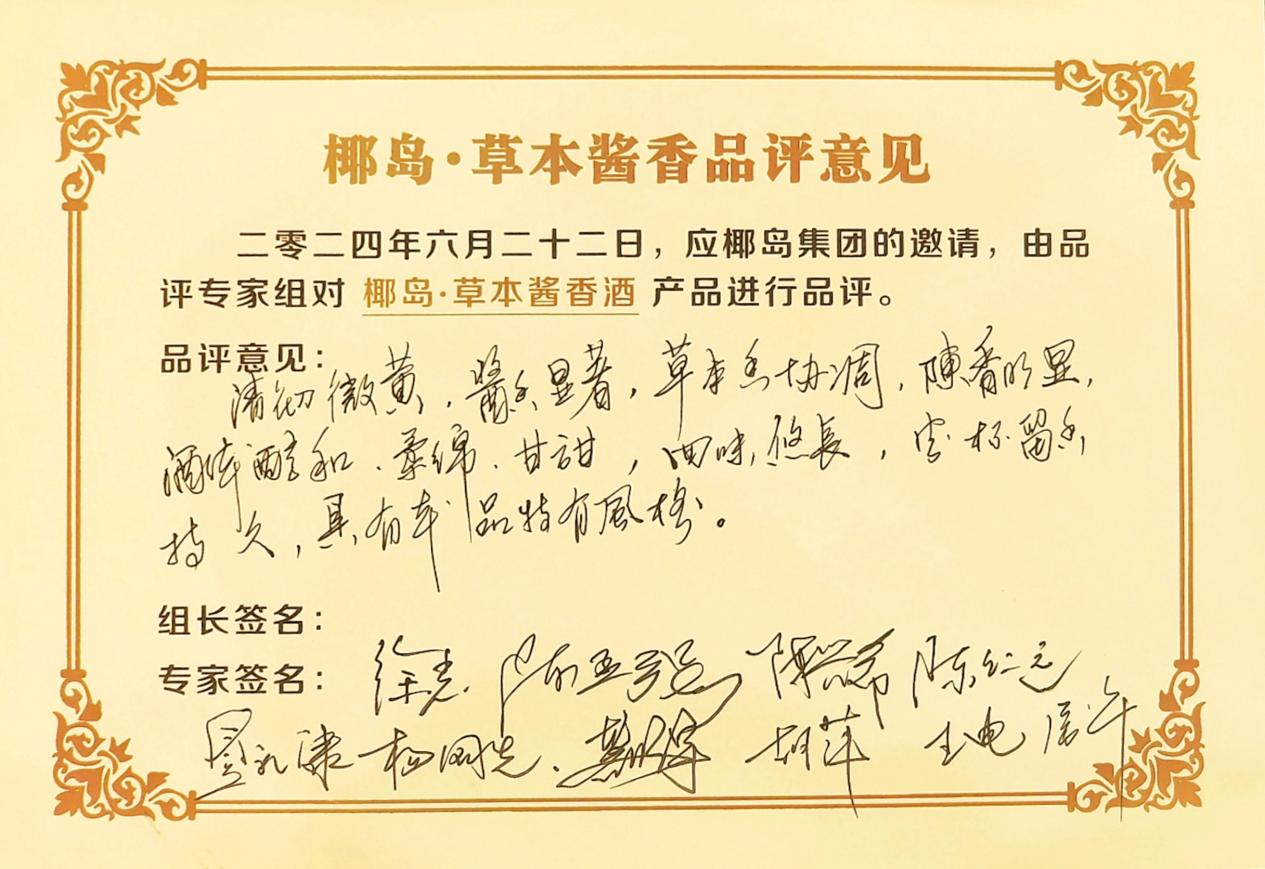 椰岛·草本酱香品评意见
二零二四年六月二十二日，应椰岛集团的邀请，由品
评专家组对 椰岛·草本酱香酒 产品进行品评。
品评意见：
清彻微黄，酱香显著，草本香协调，陳香明显，
酒体醇和、柔绵、甘甜，回味悠長，空杯留香
持久，具有本品特有風格。
组长签名：
专家签名：
陈亚 陈兴希 陈仁远
胡萍